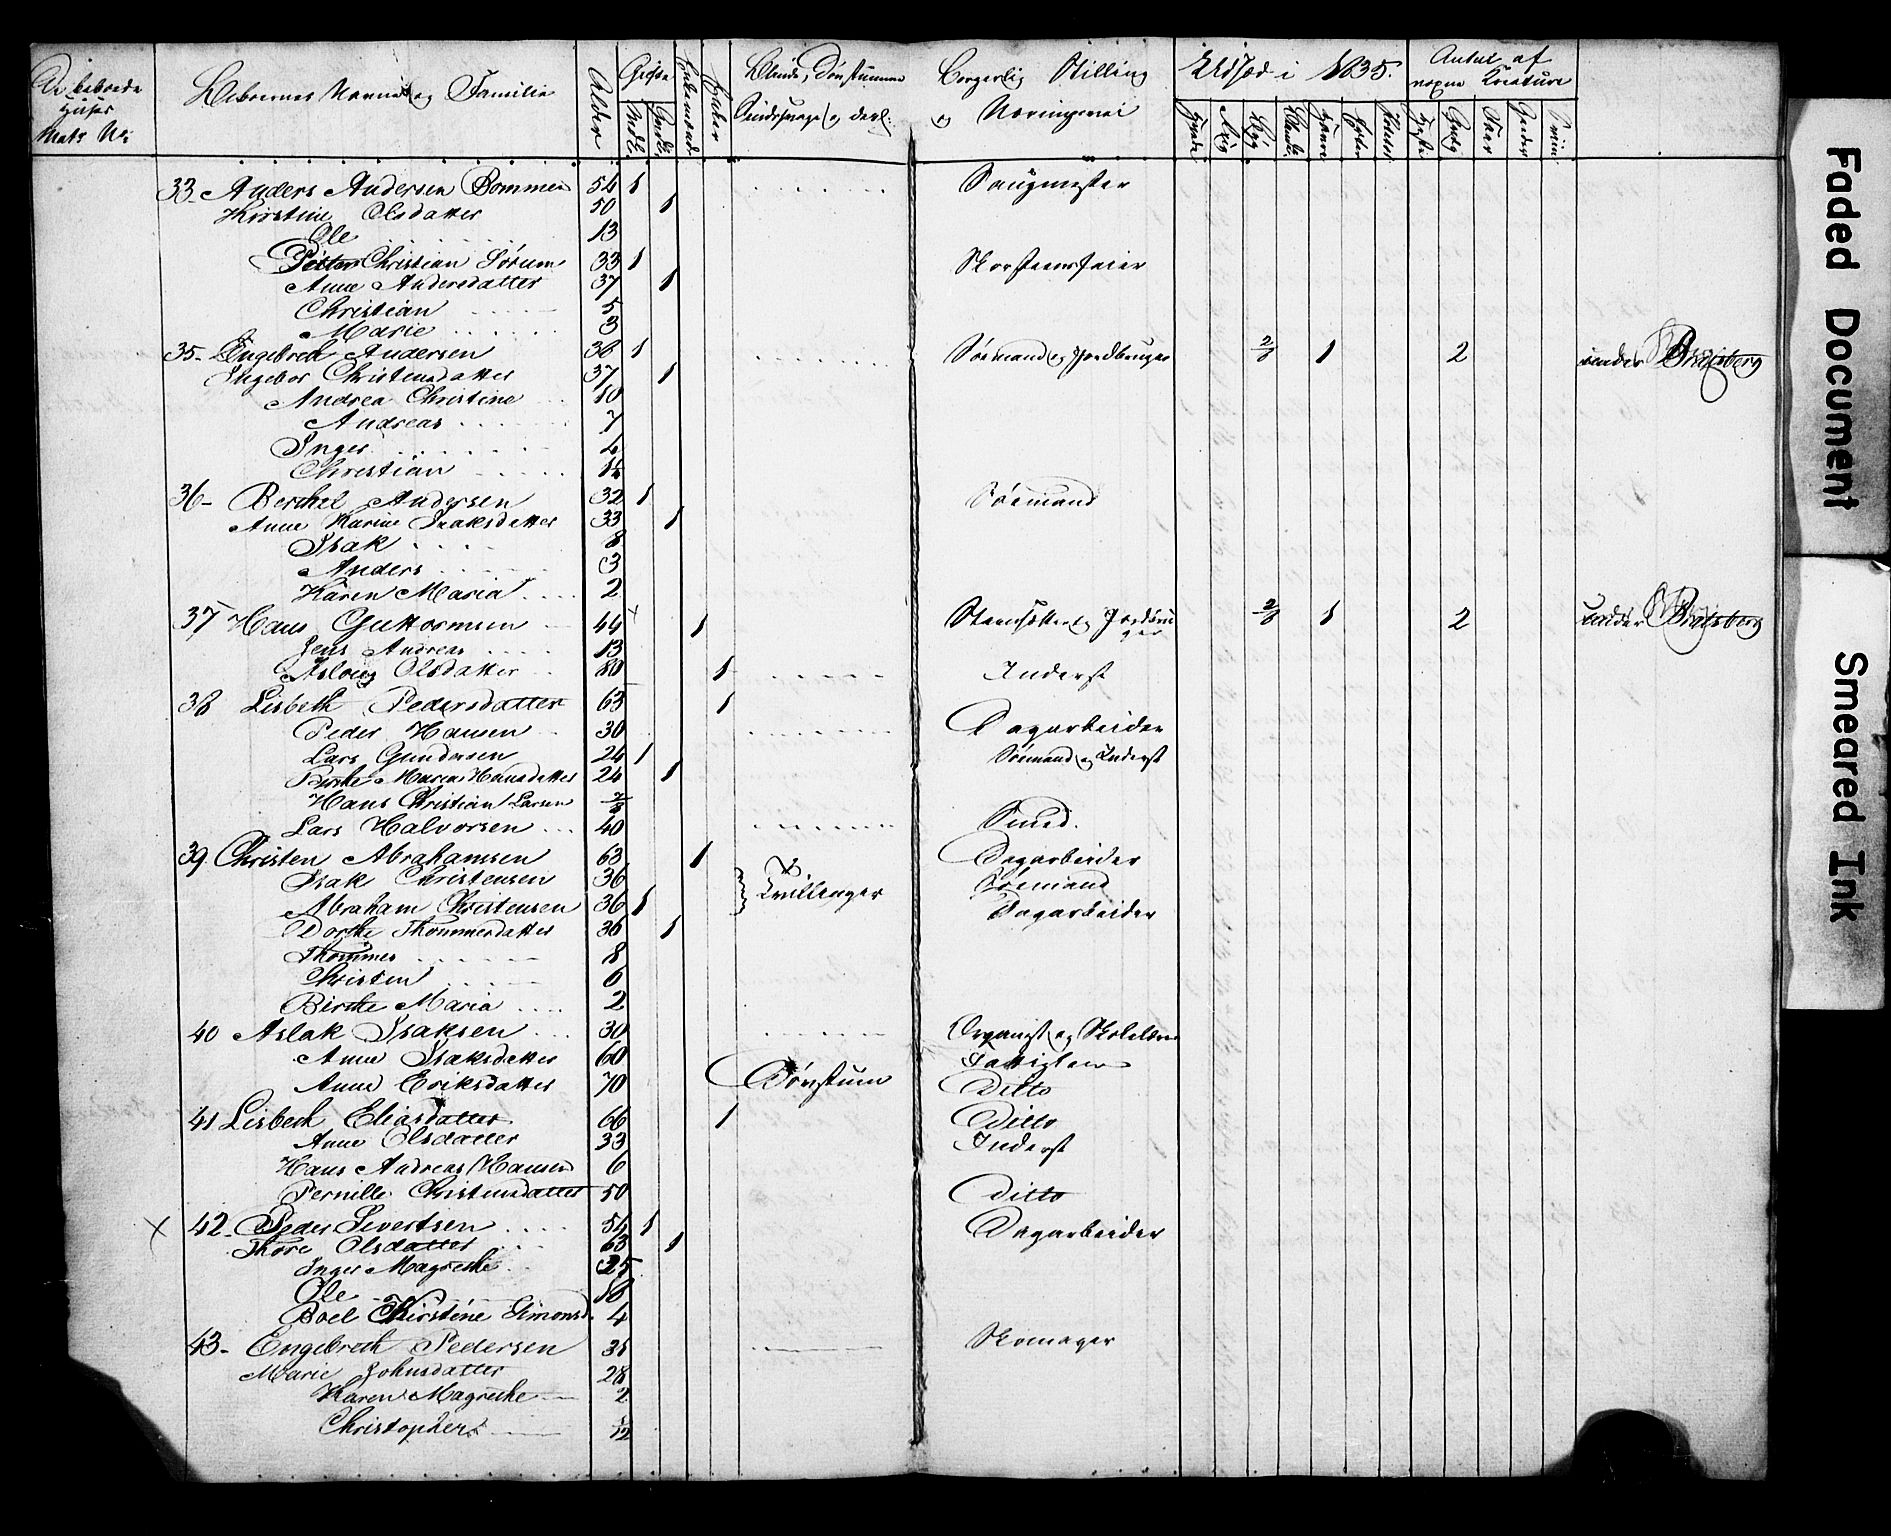 De beboede Huses Matr No:
Beboernes Navne og Familie
Alder
Gifte
Mdk.
Qvdk.
Enkemænd
Enker
Blinde, Døvstumme
Sindssvage og desl:
Borgerlig Stilling
og Næringsvei
Udsæd i 1835.
Hvede
Rug
Byg
Havre
Erter
Antal af
voxne Kreature
Heste
Qvæg
Faar
Geder
Sviin
33. Anders Andersen Bommen 54 1 Sangmester
Kirstine Olsdatter 50 1
Ole 13
Peter Christian Sørum 33 1 Skorsteensfeier
Anne Andersdatter 37 1
Christian 5
Marie 3
35. Engebret Andersen 38 1 Søemand og Jordbruger 2/8 1 2 under Bratsberg
Ingebor Christensdatter 37 1
Andrea Christine 10
Andreas 7
Inger 4
Christian 1/4
36 Berthel Andersen 32 1 Søemand
Anne Karine Isaksdatter 33 1
Isak 8
Anders 3
Karen Maria 2
37 Hans Guttormsen 44 1 Steenhugger og Jordbruger 2/8 1 2 under Bratsberg
Jens Andreas 13
Asloug Olsdatter 80 1 Inderst
38 Lisbeth Pedersdatter 63 1
Peder Hansen 30 Dagarbeider
Lars Gundersen 24 1 Søemand og Inderst
Birthe Maria Hansdatter 24 1
Hans Christian Larsen
Lars Halvorsen 40 Smed.
39. Christen Abrahamsen 63 1 Dagarbeider
Isak Christensen 36 Tvillinger Søemand
Abraham Christensen 36 1 Dagarbeider
Dorthe Thommesdatter 36 1
Thommes 8
Christen 6
Birthe Maria 2
40 Aslak Isaksen 30 Organist og Skolelærer
Anne Isaksdatter 60 Fattiglem
Anne Eriksdatter 70 Døvstum Ditto
41 Lisbeth Eliasdatter 66 1 Ditto
Anne Olsdatter 33 Inderst
Hans Andreas Hansen 6
Pernille Christensdatter 50 Ditto
42. Peder Sivertsen 54 1 Dagarbeider
Thore Olsdatter 63 1
Inger Magrethe 25
Ole 18
Boel Kirstine Simonsd. 4
43 Engebreth Pedersen 31 Skomager
Marie Johnsdatter 28
Karen Magrethe 2
Christopher 1/12
Faded Document
Smeared Ink